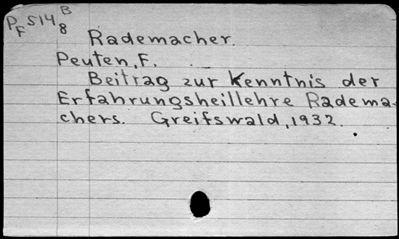 PF514 B
8
Rademacher.
Peuten, F.
Beitrag zur Kenntnis der
Erfahrungsheillehre Radema-
chers. Greifswald, 1932.